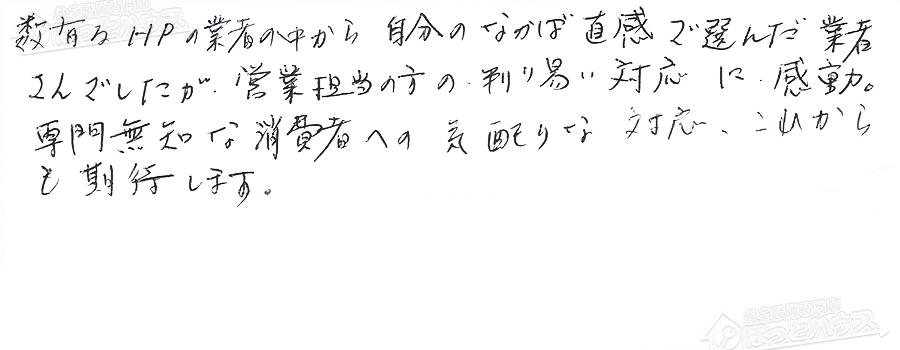 数有るHPの業者の中から 自分のなかば直感で選んだ業者
さんでしたが、営業担当の方の判り易い対応に感動。
専門無知な消費者への気配りな対応、これから
も期待します。
住宅設備専門店
ほっとハウス